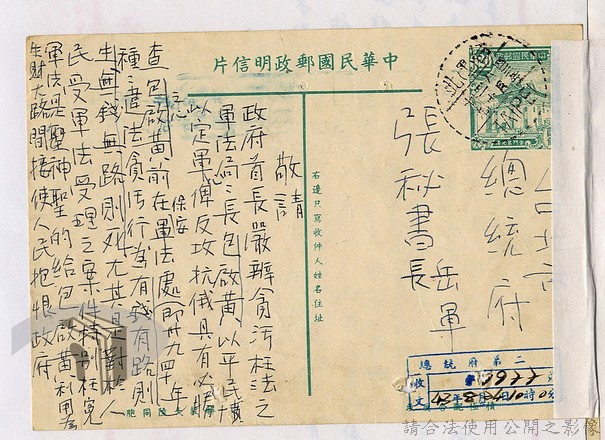 中華民國郵政明信片
右邊只寫收件人姓名住址
台北市
總統府
張秘書長岳軍
敬請
政府首長嚴辦貪污枉法之
軍法局局長包啟黃以平民憤
以定軍俾反攻抗俄具有必勝
查包啟黃前在保安軍法處即卅九年
種種違法貪污行為有錢有路則
生無錢無路則死尤其是對於人
民受軍法受理之案件特別枉冤
軍法是聖神聖的給包啟黃利用為
生財大路間接使人民抱恨政府
總統府第二
收文
請合法使用公開之影像